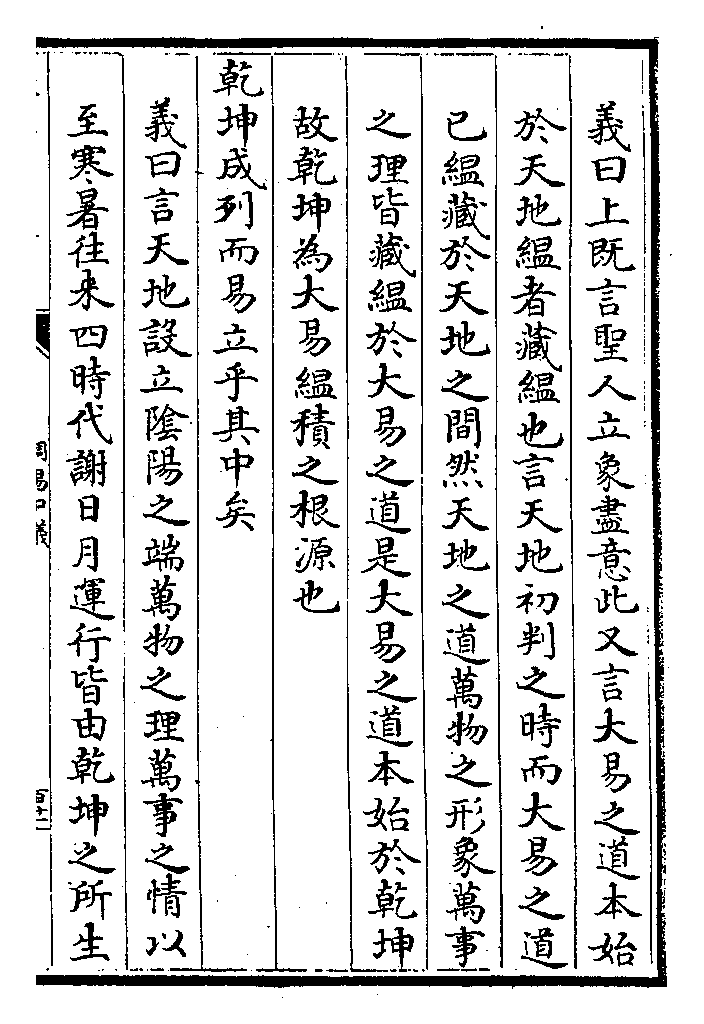 義曰上既言聖人立象盡意此又言大易之道本始
於天地緼者藏緼也言天地初判之時而大易之道
已緼藏於天地之間然天地之道萬物之形象萬事
之理皆藏緼於大易之道是大易之道本始於乾坤
故乾坤為大易緼積之根源也
乾坤成列而易立乎其中矣
義曰言天地設立隂陽之端萬物之理萬事之情以
至寒暑往来四時代謝日月運行皆由乾坤之所生
周易口義